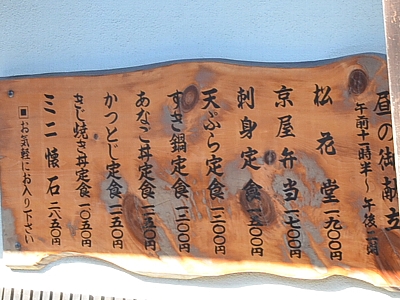 昼の御献立
午前十一時半～午後二時
松花堂 一九〇〇円
京屋弁当 一七〇〇円
刺身定食 一五〇〇円
天ぷら定食 一三〇〇円
すき鍋定食 一三〇〇円
あなご丼定食 一一五〇円
かつとじ定食 一一五〇円
きじ焼き丼定食 一〇五〇円
ミニ懐石 二八五〇円
■お気軽にお入り下さい